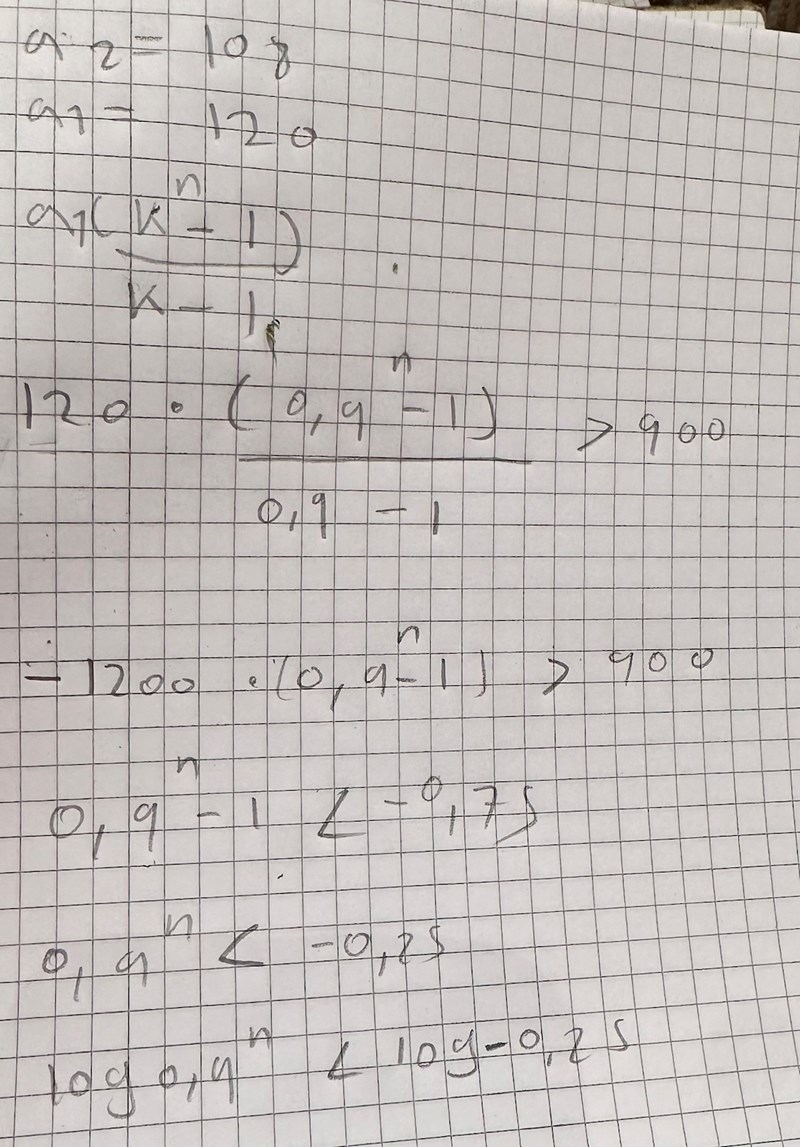 a₂ = 108
a₁ = 120
a₁(kⁿ - 1)
k - 1
120 · (0,9ⁿ - 1) > 900
0,9 - 1
-1200 · (0,9ⁿ - 1) > 900
0,9ⁿ - 1 < -0,75
0,9ⁿ < -0,25
log 0,9ⁿ < log -0,25